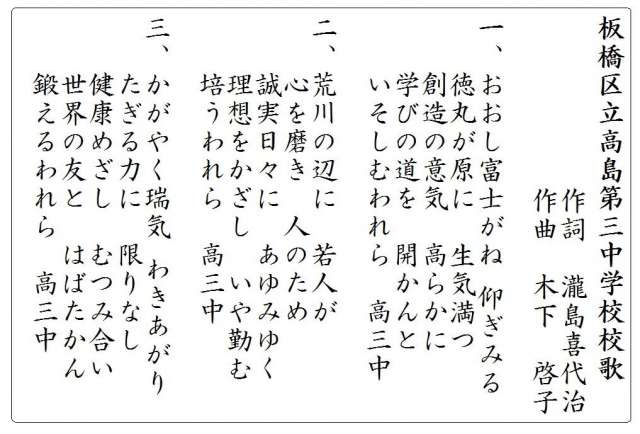 板橋区立高島第三中学校校歌
作詞　瀧島喜代治
作曲　木下　啓子
一、おおし富士がね　仰ぎみる
徳丸が原に　生気満つ
創造の意気　高らかに
学びの道を　開かんと
いそしむわれら　高三中
二、荒川の辺に　若人が
心を磨き　人のため
誠実日々に　あゆみゆく
理想をかざし　いや勤む
培うわれら　高三中
三、かがやく瑞気　わきあがり
たぎる力に　限りなし
健康めざし　むつみ合い
世界の友と　はばたかん
鍛えるわれら　高三中